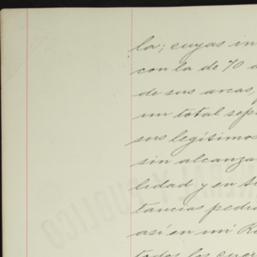 la; cuyas in
con la de 70 a
de sus arcas,
un total sepa
sus legítimos
sin alcanza
lidad y en su
tancias pedi
así en mi R
todos los cuer
PUBLICO